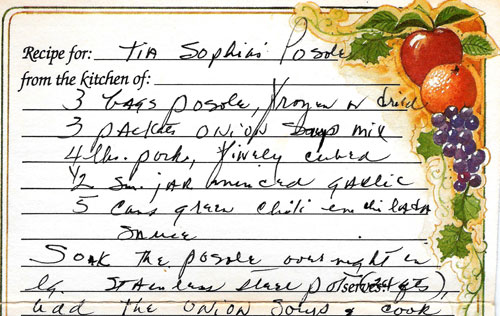 Recipe for: TIA Sophia's Posole
from the kitchen of:
3 bags posole, frozen or dried
3 packets onion soup mix
4 lbs. pork, finely cubed
1/2 sm. jar minced garlic
5 cans green chili enchilada
sauce
Soak the posole overnight in
lg. stainless steel pot serves:
add the onion soup & cook